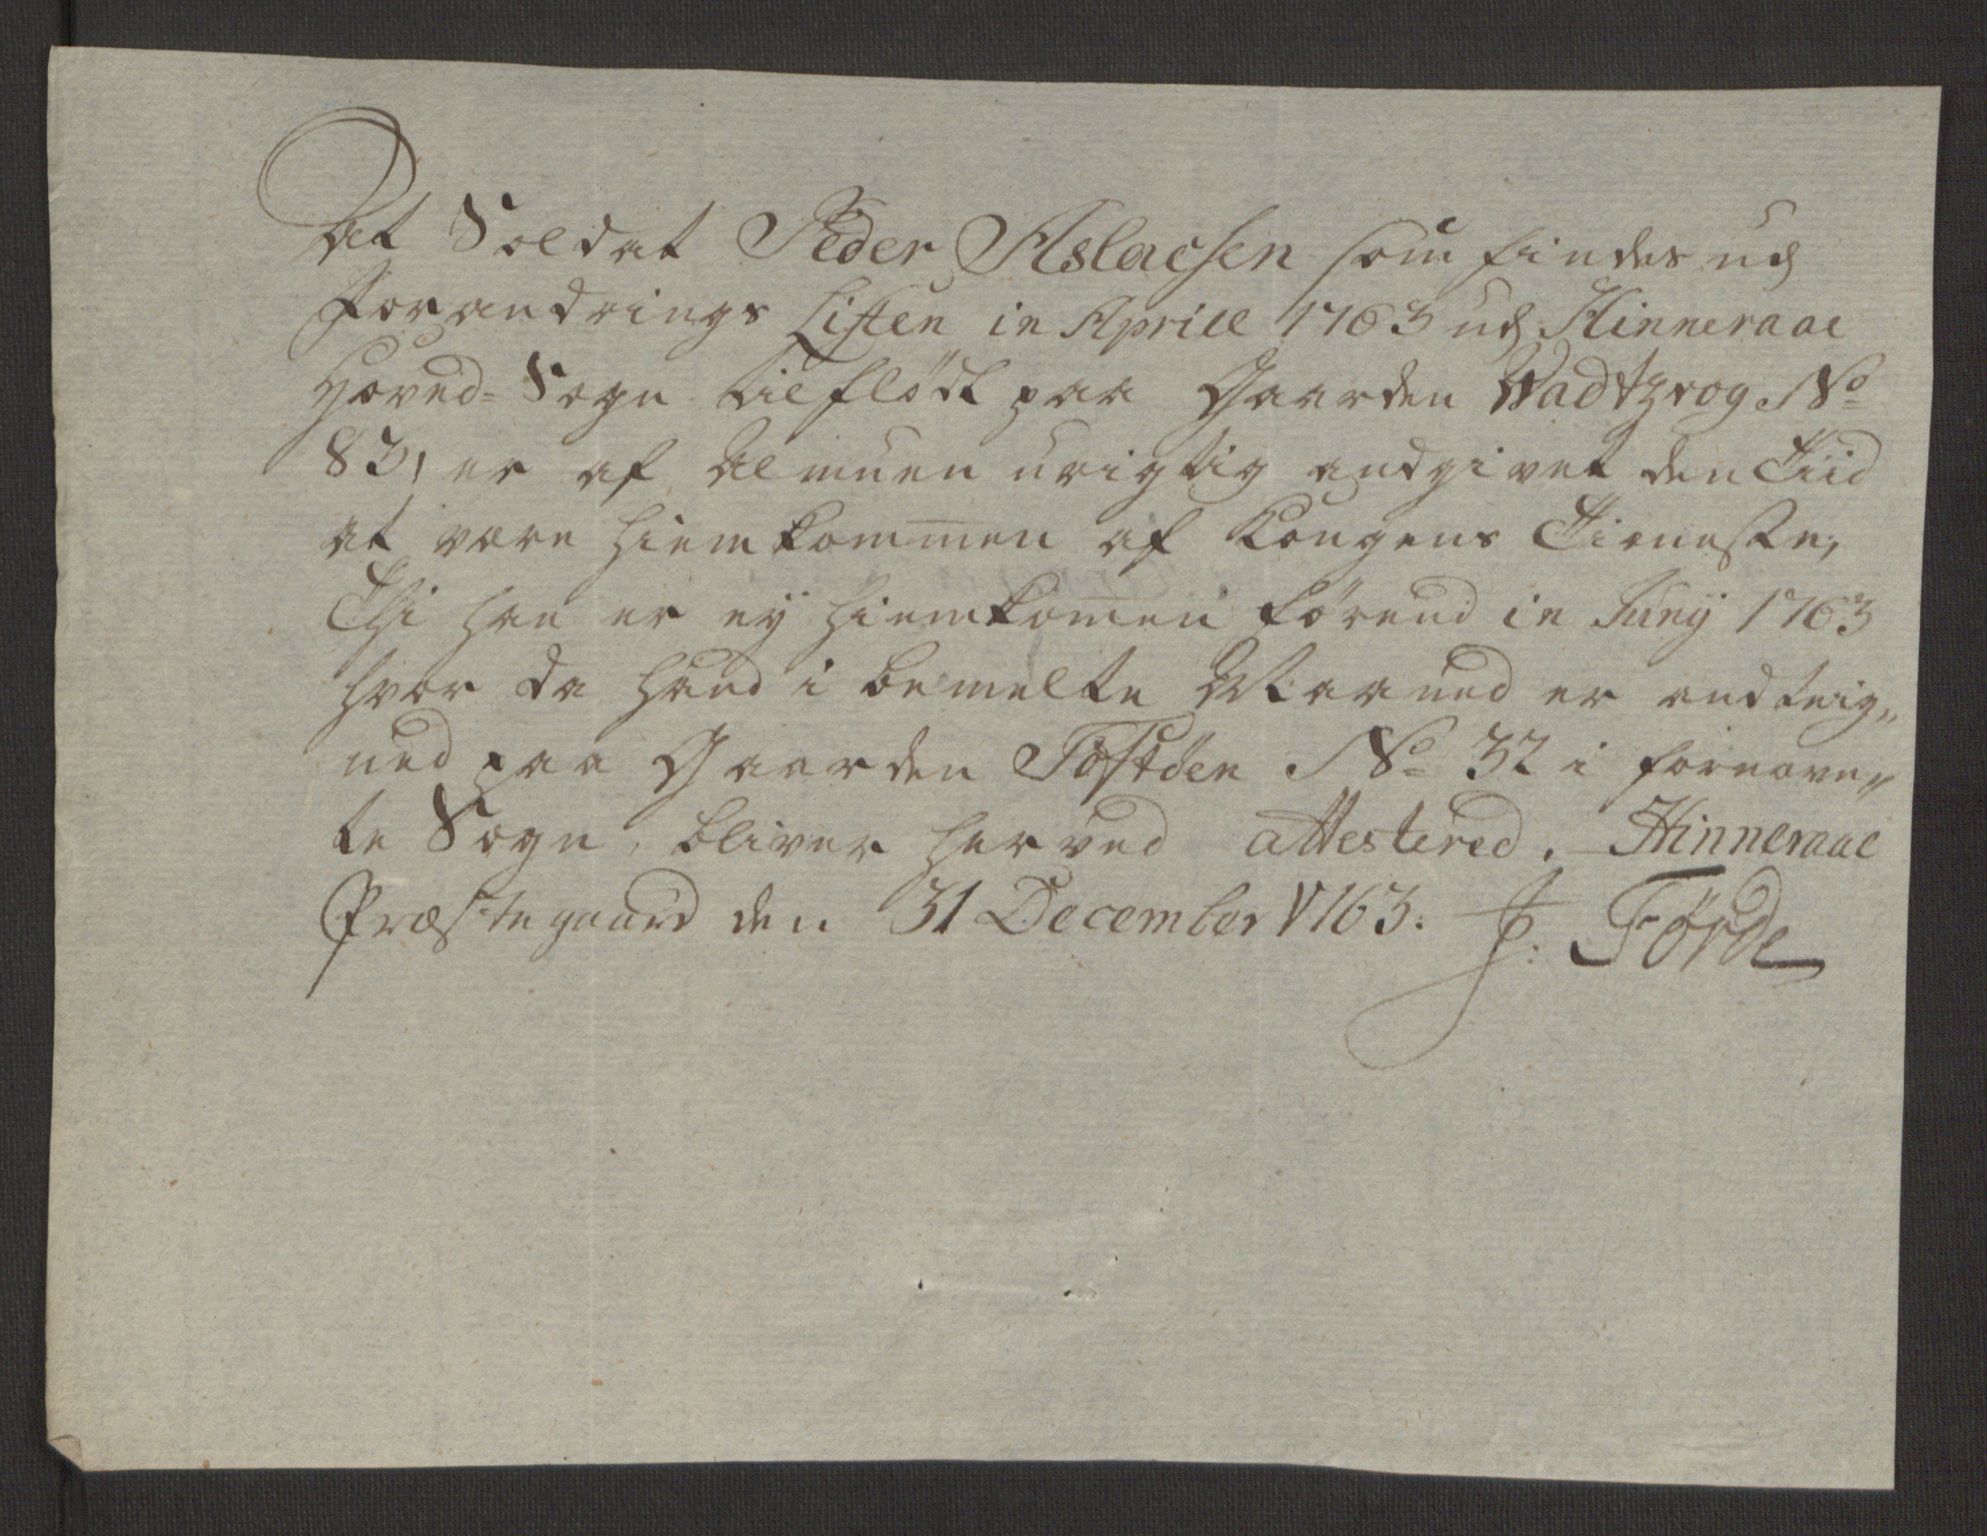 At Soldat Peder Aslacsen som findes udj
Forandrings Listen in Aprill 1763 udj Hinneraae
Hoved-Sogn tilflødt paa Gaarden Wadtzrog No
83, er af Almuen urigtig andgivet den Tiid
at være hiemkommen af Kongens Tieneste,
Thi han er ey hiemkommen førend in Junij 1763
hvor da hand i bemelte Maaned er andteig„
ned paa Gaarden Tøstøen No 32 i fornævn„
te Sogn, bliver herved attestered. Hinneraae
Præstegaard den 31 December 1763. J: Förde